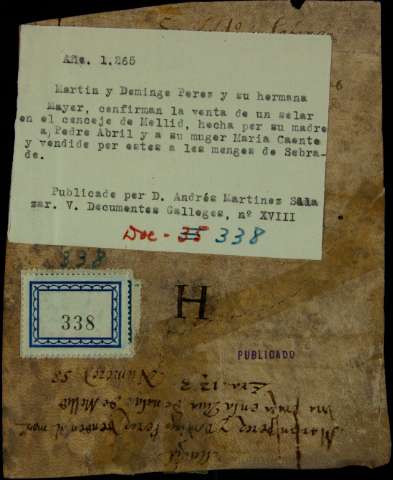 Año. 1.265
Martin y Domingo Perez y su hermana
Mayer, confirman la venta de un solar
en el concejo de Mellid, hecha por su madre
a, Pedro Abril y a su muger Maria Canto
y vendido por estos a los monges de Sobra-
do.
Publicado por D. Andrés Martinez Sala
zar. V. Documentos Gallegos, nº XVIII
Doc - 35 338
838
338
H
PUBLICADO
Martin perez y Domingo Perez venden al mon.
una en la Rua de Mellid
Era 
Numero 58